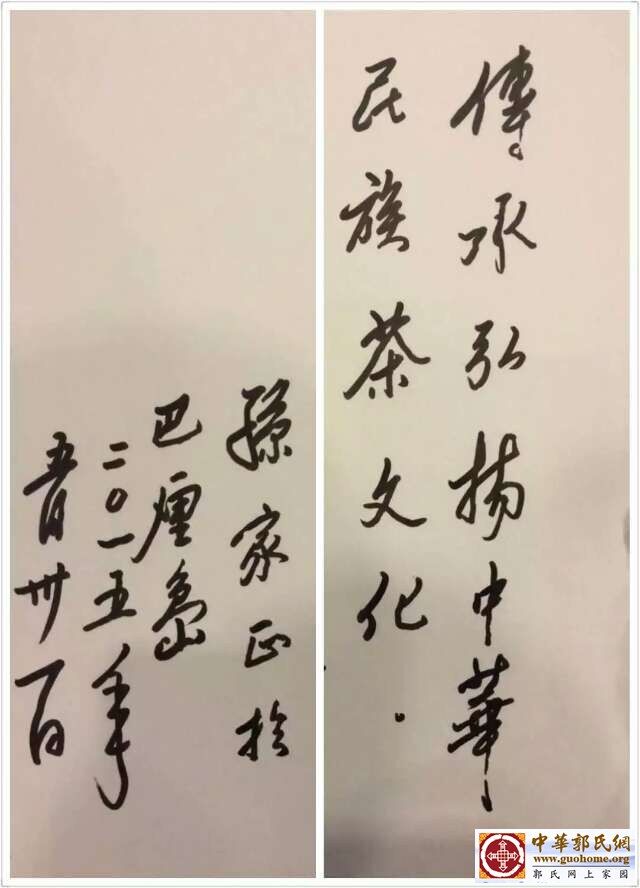 傳承弘揚中華
民族茶文化.
孫家正於
巴厘島
二〇一五年
五月卅一日
中華郭氏網
www.guohome.org
郭氏网上家园